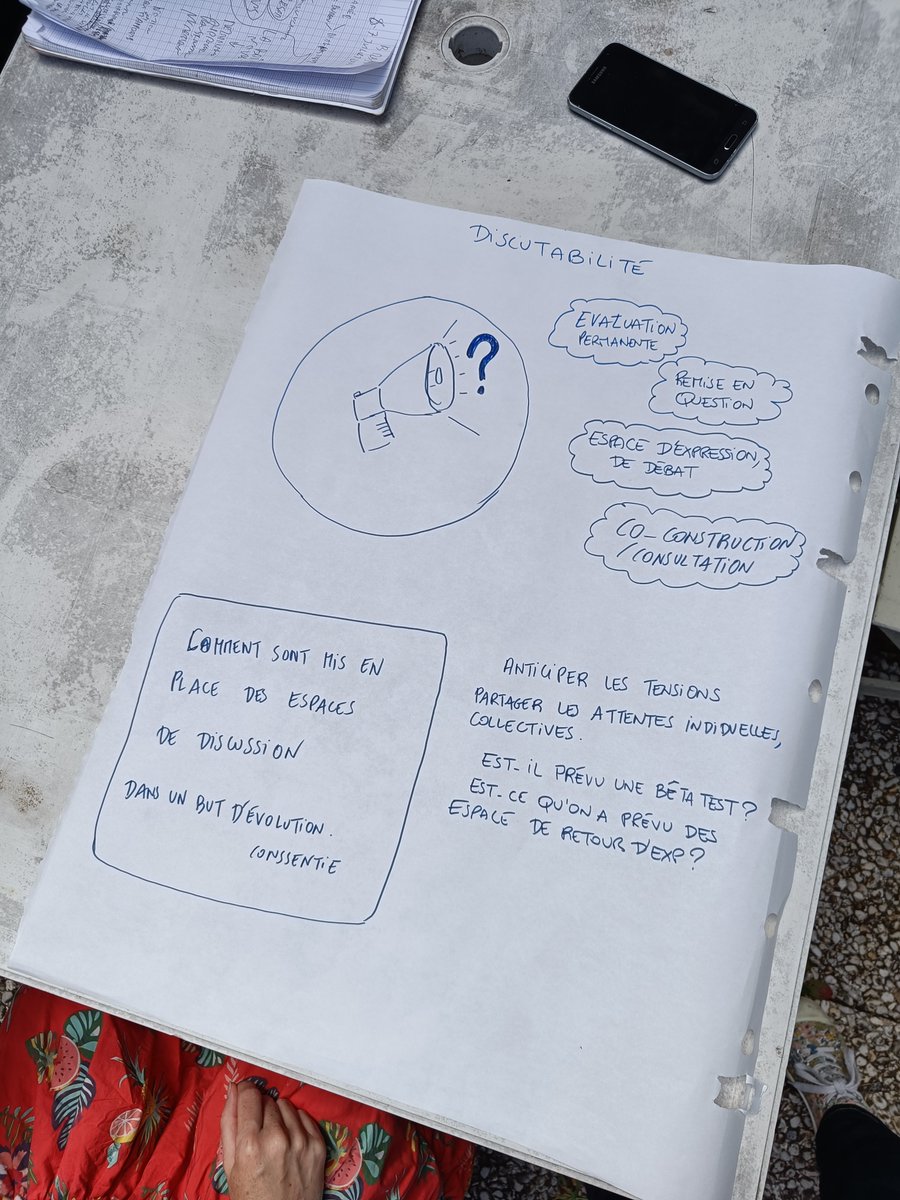 SAMSUNG
DISCUTABILITÉ
?
EVALUATION
PERMANENTE
REMISE EN
QUESTION
ESPACE D'EXPRESSION,
DE DÉBAT
CO-CONSTRUCTION
/CONSULTATION
COMMENT SONT MIS EN
PLACE DES ESPACES
DE DISCUSSION
DANS UN BUT D'ÉVOLUTION.
CONSSENTIE
ANTICIPER LES TENSIONS
PARTAGER LES ATTENTES INDIDUELLES,
COLLECTIVES.
EST-IL PRÉVU UNE BÊTA TEST?
EST-CE QU'ON A PRÉVU DES
ESPACE DE RETOUR D'EXP?